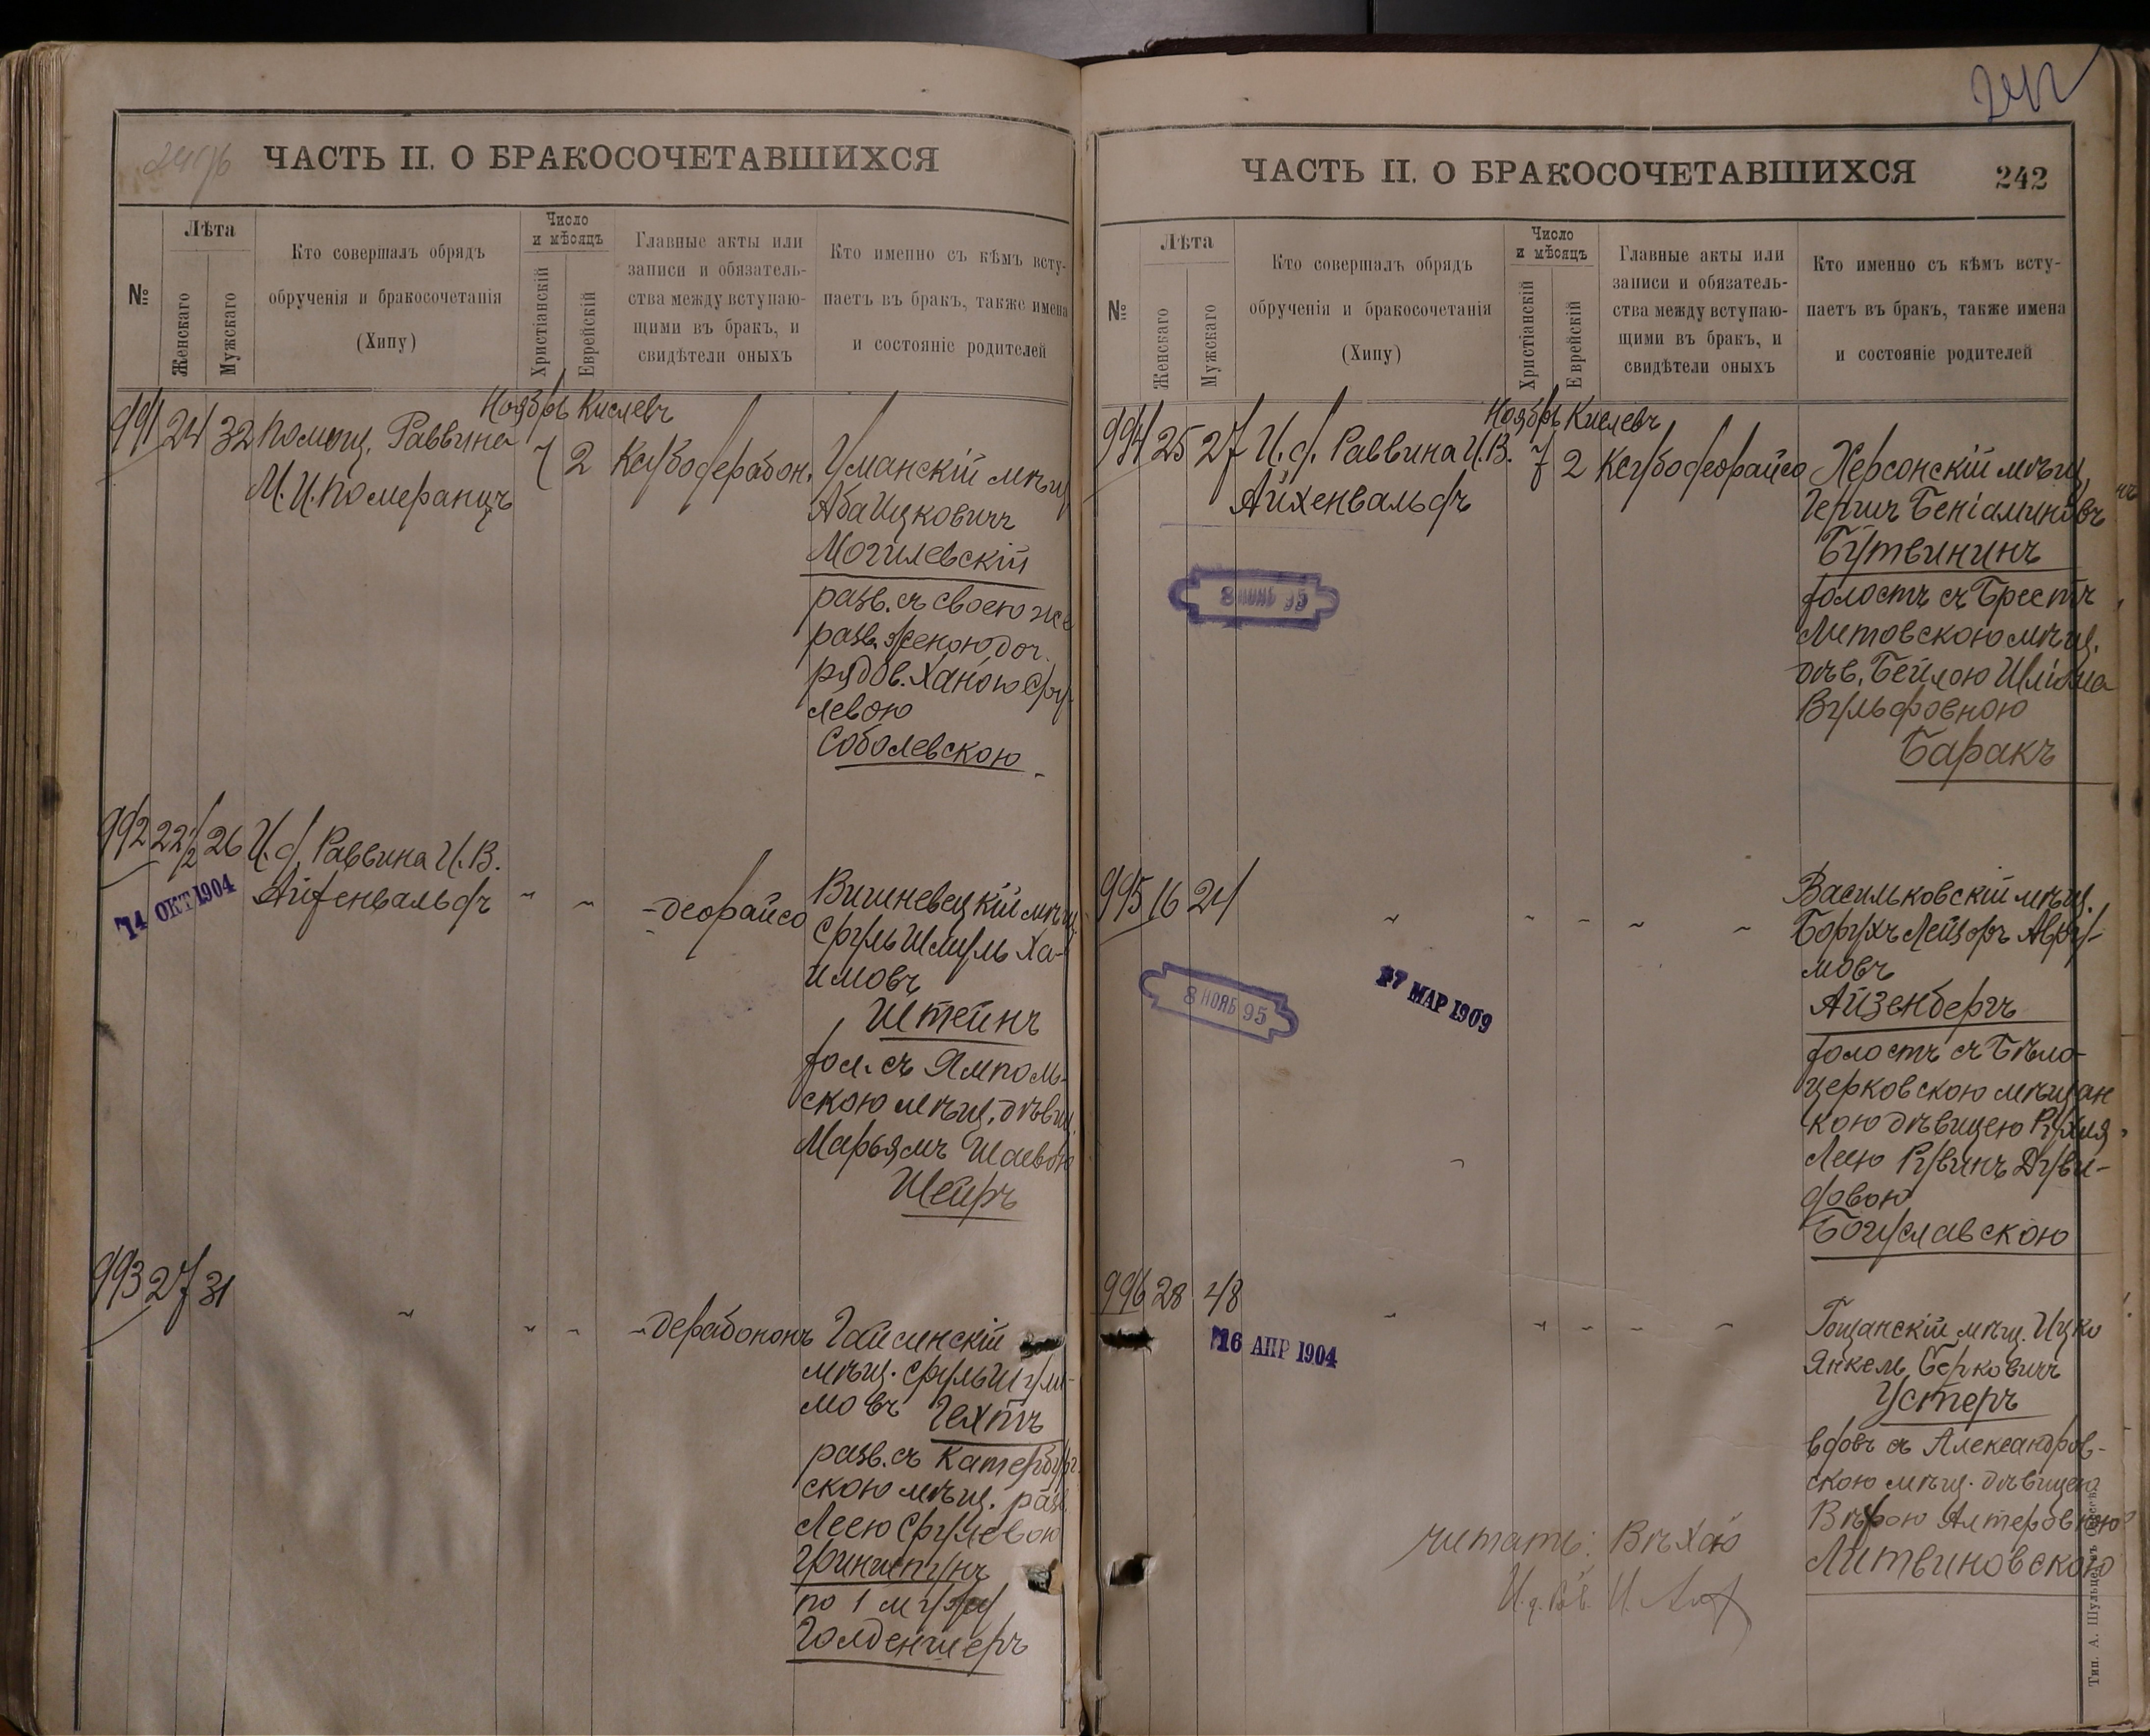 ЧАСТЬ II. О БРАКОСОЧЕТАВШИХСЯ
№
Лѣта
Женскаго
Мужскаго
Кто совершалъ обрядъ
обрученія и бракосочетанія
(Хипу)
Число
и мѣсяцъ
Христіанскій
Еврейскій
Главные акты или
записи и обязатель-
ства между вступаю-
щими въ бракъ, и
свидѣтели оныхъ
Кто именно съ кѣмъ всту-
паетъ въ бракъ, также имена
и состояніе родителей
Ноябрь Кислевъ
991 24 32 Помощ. Раввина
М. И. Померанцъ
7 2 Ксубодерабон.
Уманскій мѣщ
Аба Ицковичъ
Могилевскій
разв. съ своею же
разв. женою доч.
рядов. Ханою Сру-
левою
Соболевскою
992 22 1/2 26 И. д. Раввина И. В.
Айхенвальдъ " " -деорайсо
14 ОКТ 1904
Вишневецкій мѣщ.
Сруль Шмуль Ха-
имовъ
Штейнъ
хол. съ Ямполь-
скою мѣщ. дѣвиц.
Марьямъ Шаевою
Шейръ
993 27 31 " " " -дерабононъ
Гайсинскій
мѣщ. Сруль Шули-
мовъ Гехтъ
разв. съ Катербург.
скою мѣщ. разв.
Леею Срулевою
Гринштунъ
по 1 мужу
Голденшеръ
242
ЧАСТЬ II. О БРАКОСОЧЕТАВШИХСЯ 242
№
Лѣта
Женскаго
Мужскаго
Кто совершалъ обрядъ
обрученія и бракосочетанія
(Хипу)
Число
и мѣсяцъ
Христіанскій
Еврейскій
Главные акты или
записи и обязатель-
ства между вступаю-
щими въ бракъ, и
свидѣтели оныхъ
Кто именно съ кѣмъ всту-
паетъ въ бракъ, также имена
и состояніе родителей
Ноябрь Кислевъ
994 25 27 И. д. Раввина И. В.
Айхенвальдъ
7 2 Ксубодеорайсо
8 НОЯБ 95
Херсонскій мѣщ.
Гершъ Беніаминовъ
Бутвининъ
холостъ съ Брестъ
Литовскою мѣщ.
дѣв. Бейлою Шліома
Вульфовною
Баракъ
995 16 24 " " " " "
8 НОЯБ 95
17 МАР 1909
Васильковскій мѣщ.
Борухъ Лейзоръ Авру-
мовъ
Айзенбергъ
холостъ съ Бѣло-
церковскою мѣщан
кою дѣвицею Рухля
Леею Рувинъ Дуви-
довою
Богуславскою
996 28 48 " " " " "
16 АПР 1904
Гощанскій мѣщ. Ицко
Янкель Берковичъ
Устеръ
вдовъ съ Александров-
скою мѣщ. дѣвицею
Вѣрою Алтеровною
Литвиновскою
читать: Вѣхаю
Тип. А. Шульце